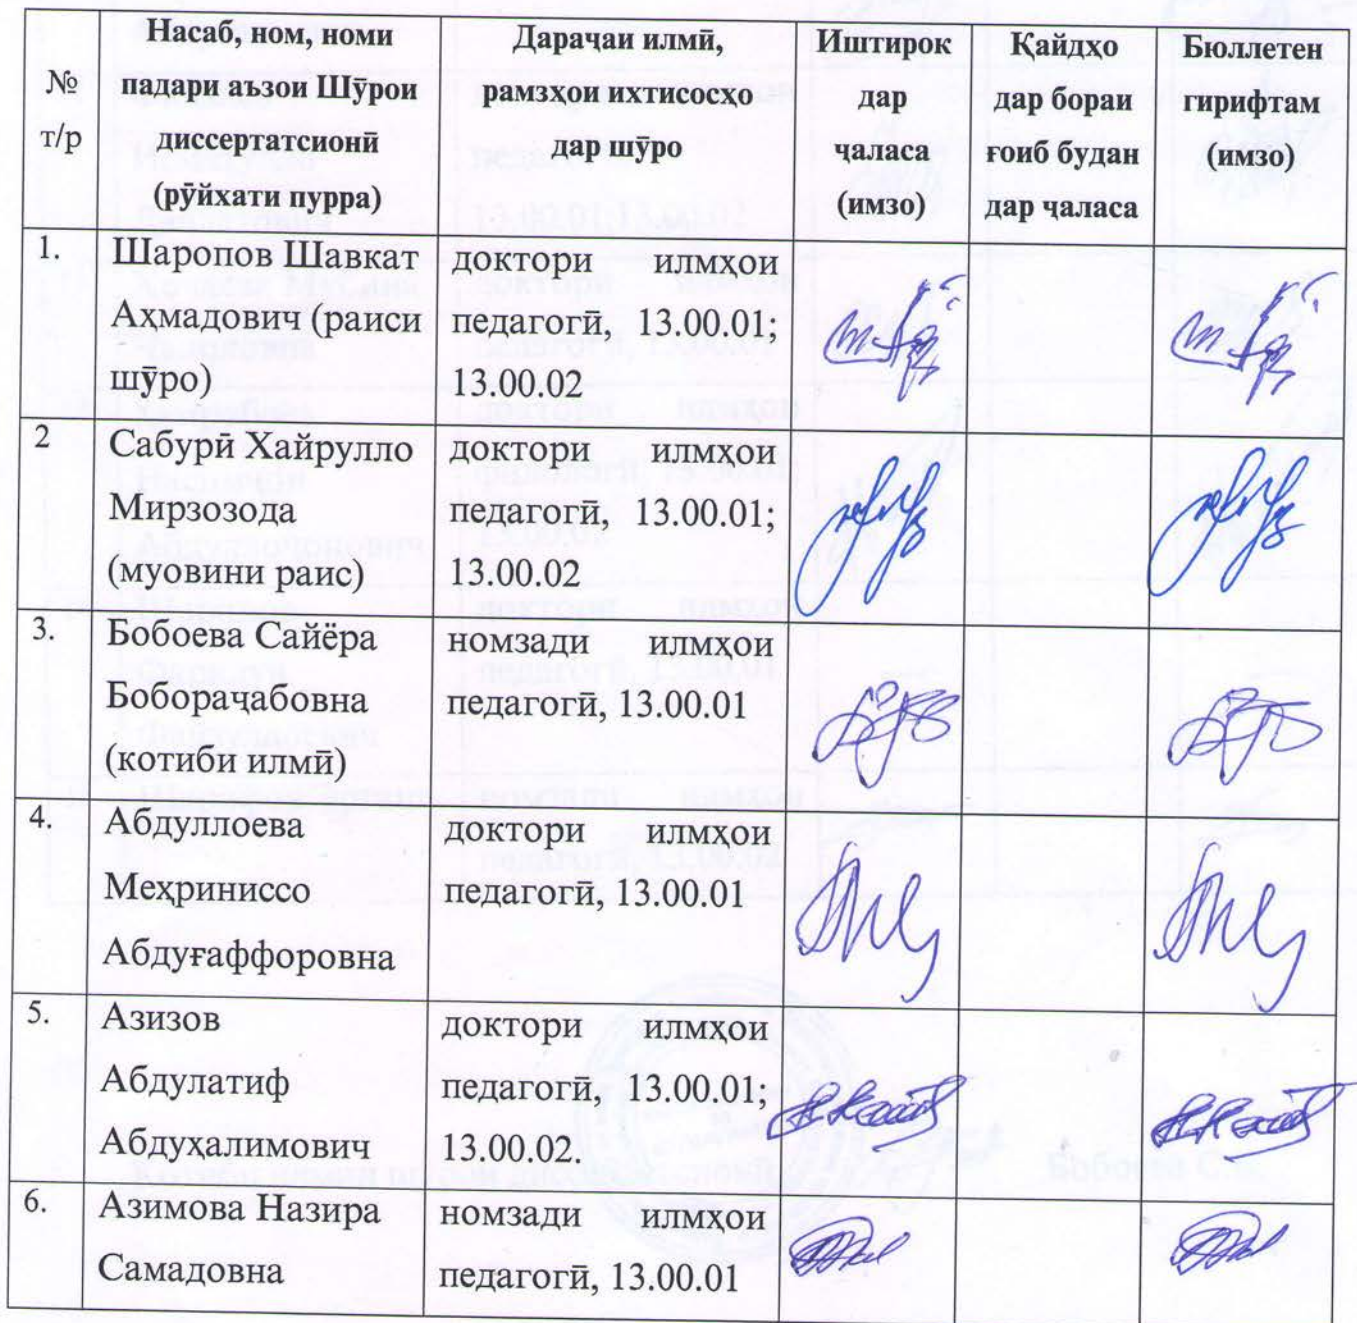 № т/р
Насаб, ном, номи
падари аъзои Шӯрои
диссертатсионӣ
(рӯйхати пурра)
Дараҷаи илмӣ,
рамзҳои ихтисосҳо
дар шӯро
Иштирок
дар
ҷаласа
(имзо)
Қайдҳо
дар бораи
ғоиб будан
дар ҷаласа
Бюллетен
гирифтам
(имзо)
1.
Шаропов Шавкат
Аҳмадович (раиси
шӯро)
доктори илмҳои
педагогӣ, 13.00.01;
13.00.02
2
Сабурӣ Хайрулло
Мирзозода
(муовини раис)
доктори илмҳои
педагогӣ, 13.00.01;
13.00.02
3.
Бобоева Сайёра
Бобораҷабовна
(котиби илмӣ)
номзади илмҳои
педагогӣ, 13.00.01
4.
Абдуллоева
Меҳриниссо
Абдуғаффоровна
доктори илмҳои
педагогӣ, 13.00.01
5.
Азизов
Абдулатиф
Абдуҳалимович
доктори илмҳои
педагогӣ, 13.00.01;
13.00.02.
6.
Азимова Назира
Самадовна
номзади илмҳои
педагогӣ, 13.00.01